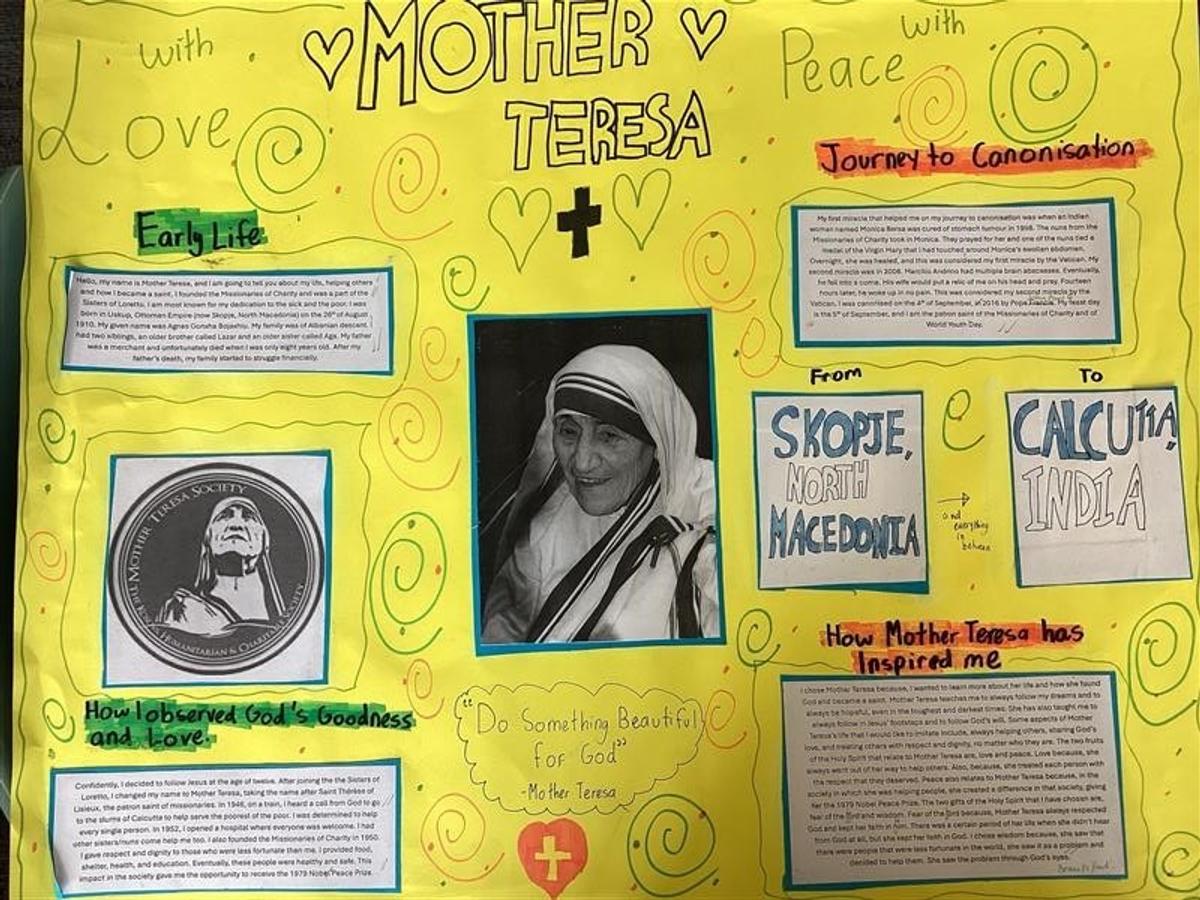 with
Love
MOTHER
TERESA
with
Peace
Early Life
Hello, my name is Mother Teresa, and I am going to tell you about my life, helping others
and how I became a saint. I founded the Missionaries of Charity and was a part of the
Sisters of Loretto. I am most known for my dedication to the sick and the poor. I was
born in Uskup, Ottoman Empire (now Skopje, North Macedonia) on the 26th of August
1910. My given name was Agnes Gonxha Bojaxhiu. My family was of Albanian descent. I
had two siblings, an older brother called Lazar and an older sister called Aga. My father
was a merchant and unfortunately died when I was only eight years old. After my
father's death, my family started to struggle financially.
MOTHER TERESA SOCIETY
HUMANITARIAN & CHARITABLE SOCIETY
How I observed God's Goodness
and Love.
Confidently, I decided to follow Jesus at the age of twelve. After joining the the Sisters of
Loretto, I changed my name to Mother Teresa, taking the name after Saint Thérèse of
Lisieux, the patron saint of missionaries. In 1946, on a train, I heard a call from God to go
to the slums of Calcutta to help serve the poorest of the poor. I was determined to help
every single person. In 1952, I opened a hospital where everyone was welcome. I had
other sisters/nuns come help me too. I also founded the Missionaries of Charity in 1950.
I gave respect and dignity to those who were less fortunate than me. I provided food,
shelter, health, and education. Eventually, these people were healthy and safe. This
impact in the society gave me the opportunity to receive the 1979 Nobel Peace Prize.
"Do Something Beautiful
for God"
-Mother Teresa
Journey to Canonisation
My first miracle that helped me on my journey to canonisation was when an Indian
woman named Monica Bersa was cured of stomach tumour in 1998. The nuns from the
Missionaries of Charity took in Monica. They prayed for her and one of the nuns tied a
medal of the Virgin Mary that I had touched around Monica's swollen abdomen.
Overnight, she was healed, and this was considered my first miracle by the Vatican. My
second miracle was in 2008. Marcilio Andrino had multiple brain abscesses. Eventually,
he fell into a coma. His wife would put a relic of me on his head and pray. Fourteen
hours later, he woke up in no pain. This was considered my second miracle by the
Vatican. I was canonised on the 4th of September, in 2016 by Pope Francis. My feast day
is the 5th of September, and I am the patron saint of the Missionaries of Charity and of
World Youth Day.
From
SKOPJE,
NORTH
MACEDONIA
and
everything
in
between
To
CALCUTTA,
INDIA
How Mother Teresa has
Inspired me
I chose Mother Teresa because, I wanted to learn more about her life and how she found
God and became a saint. Mother Teresa teaches me to always follow my dreams and to
always be hopeful, even in the toughest and darkest times. She has also taught me to
always follow in Jesus' footsteps and to follow God's will. Some aspects of Mother
Teresa's life that I would like to imitate include, always helping others, sharing God's
love, and treating others with respect and dignity, no matter who they are. The two fruits
of the Holy Spirit that relate to Mother Teresa are, love and peace. Love because, she
always went out of her way to help others. Also, because, she treated each person with
the respect that they deserved. Peace also relates to Mother Teresa because, in the
society in which she was helping people, she created a difference in that society, giving
her the 1979 Nobel Peace Prize. The two gifts of the Holy Spirit that I have chosen are,
fear of the lord and wisdom. Fear of the lord because, Mother Teresa always respected
God and kept her faith in him. There was a certain period of her life when she didn't hear
from God at all, but she kept her faith in God. I chose wisdom because, she saw that
there were people that were less fortunate in the world, she saw it as a problem and
decided to help them. She saw the problem through God's eyes.